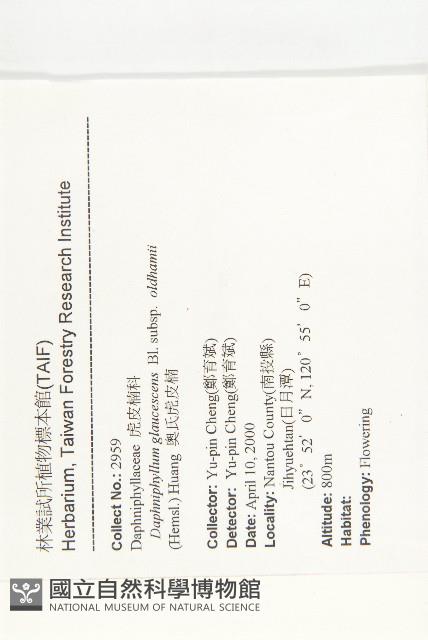 林業試所植物標本館(TAIF)
Herbarium, Taiwan Forestry Research Institute
Collect No.: 2959
Daphniphyllaceae 虎皮楠科
Daphniphyllum glaucescens Bl. subsp. oldhamii
(Hemsl.) Huang 奧氏虎皮楠
Collector: Yu-pin Cheng(鄭育斌)
Detector: Yu-pin Cheng(鄭育斌)
Date: April 10, 2000
Locality: Nantou County(南投縣)
Jihyuehtan(日月潭)
(23° 52' 0" N, 120° 55' 0" E)
Altitude: 800m
Habitat:
Phenology: Flowering
國立自然科學博物館
NATIONAL MUSEUM OF NATURAL SCIENCE